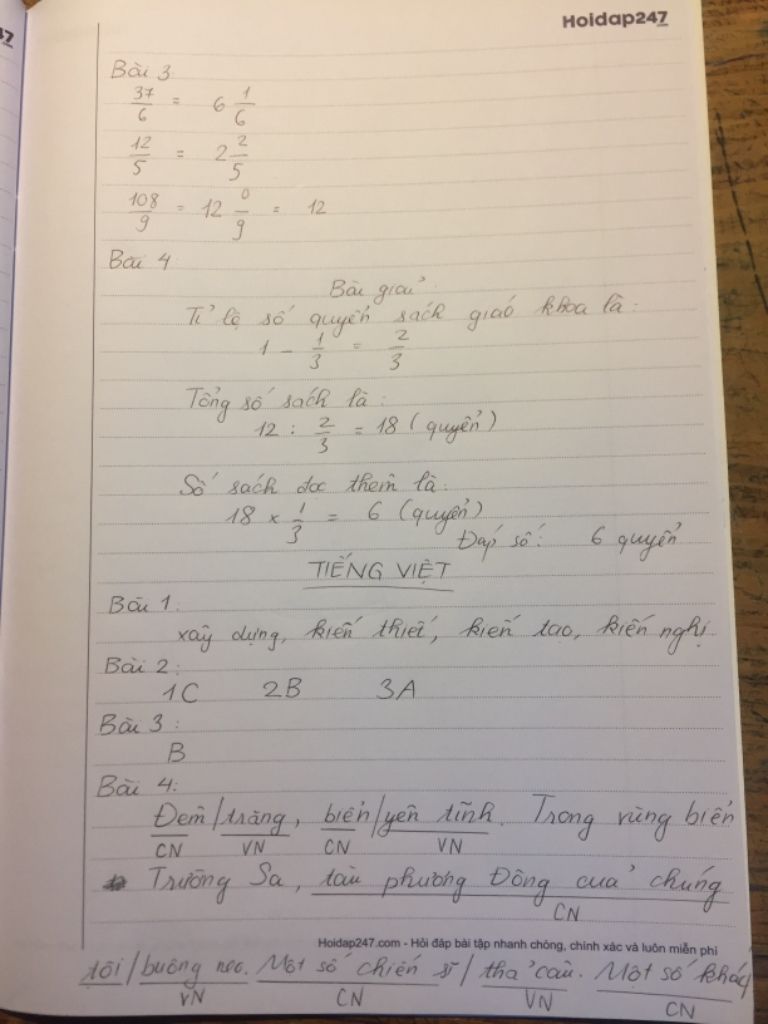 Hoidap247
Bài 3
37/6 = 6 1/6
12/5 = 2 2/5
108/9 = 12 0/9 = 12
Bài 4
Bài giải:
Tỉ lệ số quyển sách giáo khoa là:
1 - 1/3 = 2/3
Tổng số sách là:
12 : 2/3 = 18 (quyển)
Số sách đọc thêm là:
18 x 1/3 = 6 (quyển)
Đáp số: 6 quyển
TIẾNG VIỆT
Bài 1:
xây dựng, kiến thiết, kiến tạo, kiến nghị
Bài 2:
1C 2B 3A
Bài 3:
B
Bài 4:
Đêm/trăng, biển/yên tĩnh. Trong vùng biển
CN VN CN VN
Trường Sa, tàu phương Đông của chúng
CN
Hoidap247.com - Hỏi đáp bài tập nhanh chóng, chính xác và luôn miễn phí
tôi/buông neo. Một số chiến sĩ/thả câu. Một số khác/
VN CN VN CN